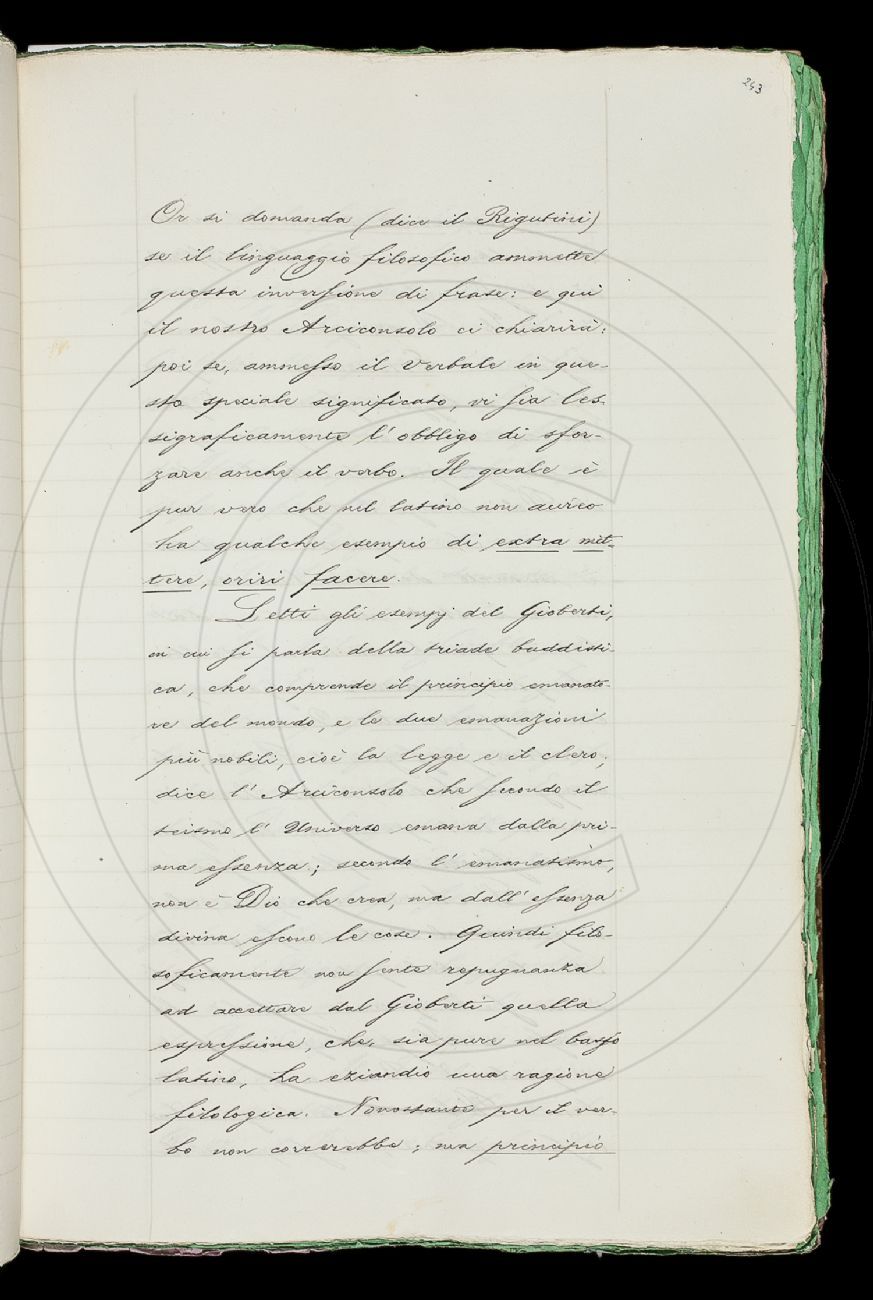 243
Or si domanda (dice il Rigutini)
se il linguaggio filosofico ammette
questa inversione di frase: e qui
il nostro Arciconsolo ci chiarirà:
poi se, ammesso il verbale in que-
sto speciale significato, vi sia les-
sigraficamente l' obbligo di sfor-
zare anche il verbo. Il quale è
pur vero che nel latino non aureo
ha qualche esempio di extra mit-
tere, oriri facere.
Letti gli esempj del Gioberti,
in cui si parla della triade buddisti-
ca, che comprende il principio emanato-
re del mondo, e le due emanazioni
più nobili, cioè la legge e il clero;
dice l' Arciconsolo che secondo il
teismo l' Universo emana dalla pri-
ma essenza; secondo l' emanatismo,
non è Dio che crea, ma dall' essenza
divina escono le cose. Quindi filo-
soficamente non sente repugnanza
ad accettare dal Gioberti quella
espressione, che, sia pure nel basso
latino, ha eziandio una ragione
filologica. Nonostante per il ver-
bo non correrebbe; ma principio